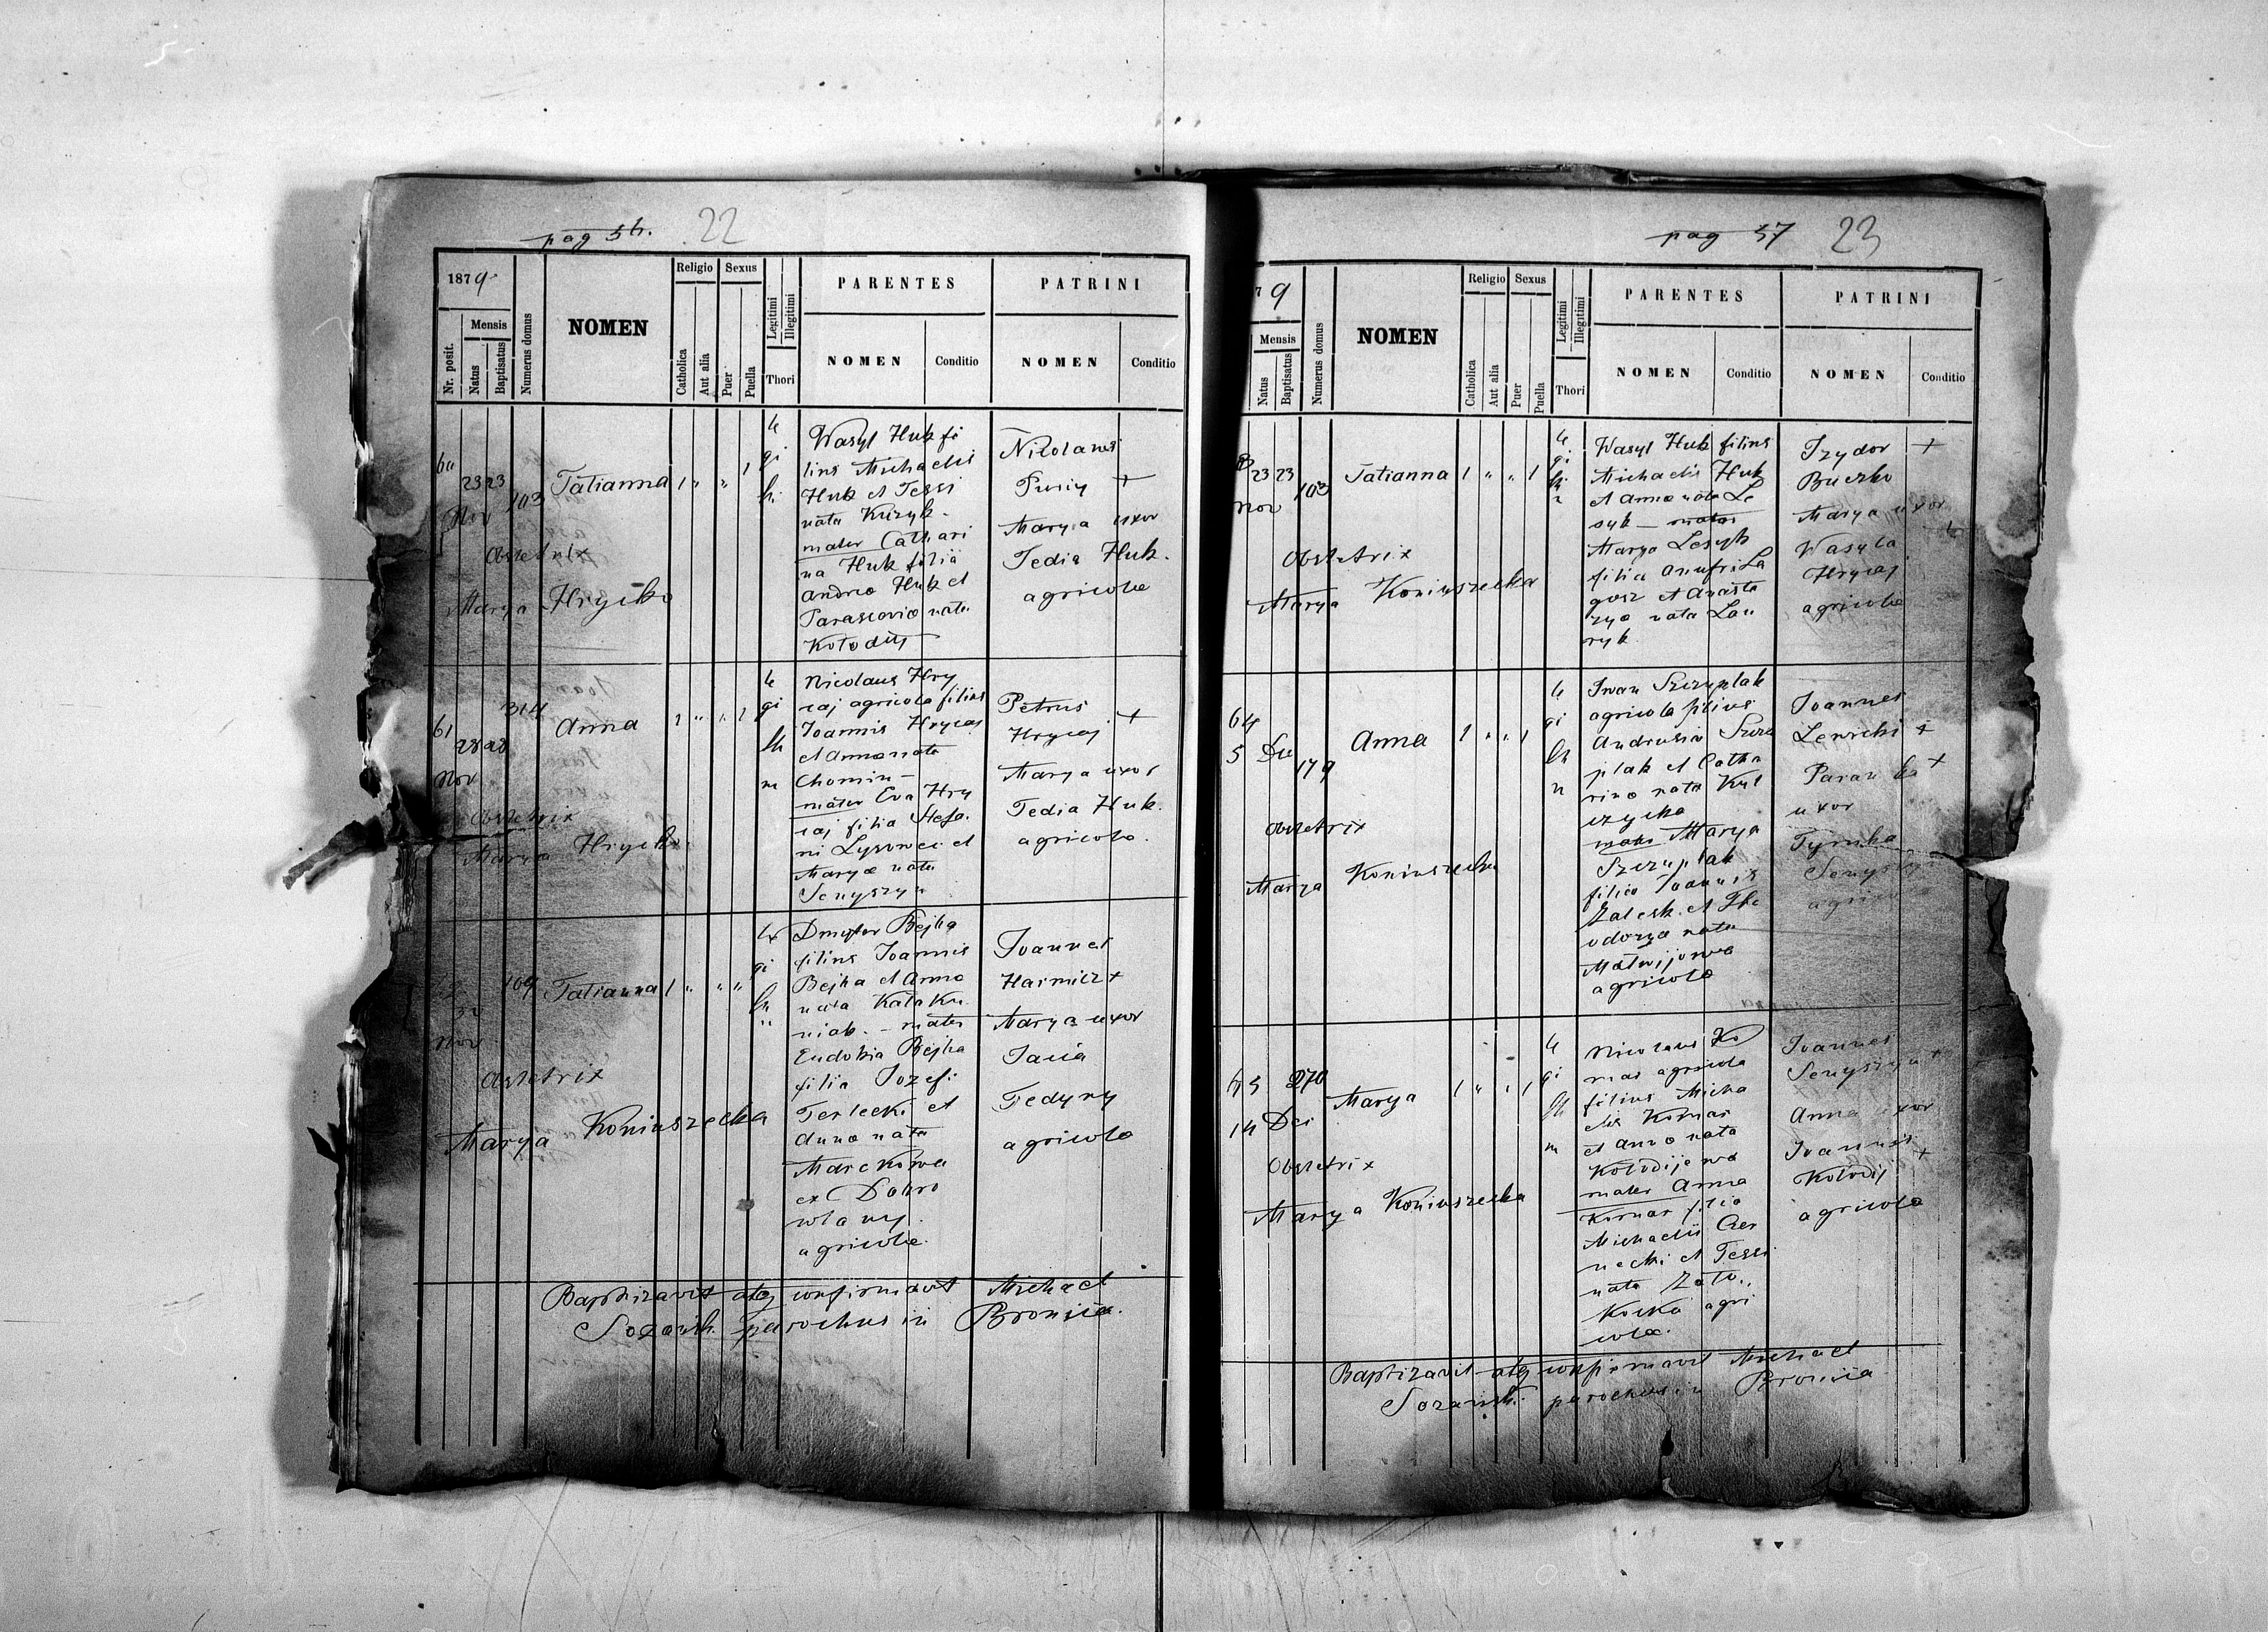 pag 56. 22
1879
Nr. posit.
Mensis
Natus
Baptisatus
Numerus domus
NOMEN
Religio
Catholica
Aut alia
Sexus
Puer
Puella
Legitimi
Illegitimi
Thori
PARENTES
NOMEN
Conditio
PATRINI
NOMEN
Conditio
60
23 23
Nov
103
Tatianna
1 " " 1
le
gi
ti
Wasyl Huk fi
lius Michaelis
Huk et Tessi
nata Kuzyk -
mater Cathari
na Huk filia
Andreo Huk et
Parascovio nata
Kołodij
Nicolaus
Pusiy +
Marya uxor
Fedia Huk.
agricolae
Obstetrix
Marya Hryćko
61
28 28
Nov
314
Anna
1 " " 1
le
gi
th
m
Nicolaus Hry
caj agricola filius
Joannis Hrycaj
et Anna nata
Chomin -
mater Eva Hry
caj filia Stefa
ni Lysowei et
Maryæ nata
Senyszyn
Petrus
Hrycaj +
Marya uxor
Fedia Huk.
agricolae.
Obstetrix
Marya Hryćko
Nov
109
Tatianna
1 " " "
le
gi
th
"
Dmyter Bejha
filius Joannis
Bejha et Anna
nata Kataku
niak. - mater
Eudokia Bejha
filia Jozefi
Terlecki et
Anna nata
Markowa
ex Dobro
wlany.
agricolae.
Joannes
Harmicz +
Marya uxor
Jacia
Fedyny
agricolae
Obstetrix
Marya Koniuszecka
Baptizavit atq confirmavit Michael
Sozański parochus in Bronica.
pag 57 23
79
Mensis
Natus
Baptisatus
Numerus domus
NOMEN
Religio
Catholica
Aut alia
Sexus
Puer
Puella
Legitimi
Illegitimi
Thori
PARENTES
NOMEN
Conditio
PATRINI
NOMEN
Conditio
23 23
Nov
103
Tatianna
1 " " 1
le
gi
ti
Wasyl Huk filius
Michaelis Huk
et Anna nata Le
syk - mater
Marya Lesyk
filia Onufri La
gosz et Anasta
zyo nata Lau
ryk
Izydor +
Buczko
Marya uxor
Wasyla
Hrycaj
agricolae
Obstetrix
Marya Koniuszecka
64
5 Dec
179
Anna
1 " " 1
le
gi
th
n
Iwan Szczuplak
agricola filius
Andrusia Szczu
plak et Catha
rino nata Kul
czycka
mater Marya
Szczuplak
filia Joannis
Zalesk. et The
odorya nata
Matwijowa
agricolae
Joannes
Lewicki +
Paranka +
uxor
Tymka
Senyszyn
agricolae
Obstetrix
Marya Koniuszecka
65
14 Dec
270
Marya
1 " " 1
le
gi
th
m
Nicolaus Ko
mar agricola
filius Micha
elis Komar
et Anno nata
Kołodijowa
mater Anna
Komar filia
Michaelis Czer
necki et Tessi
nata Zato..
Kocka agri
colae.
Joannes
Senyszyn +
Anna uxor
Joannis +
Kołodij
agricolae
Obstetrix
Marya Koniuszecka
Baptizavit atq confirmavit Michael
Sozański parochus in Bronica